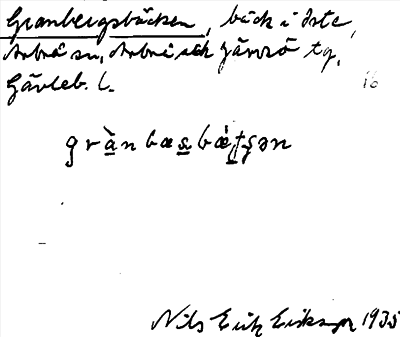 Granbergsbäcken, bäck i Öste,
Arbrå sn, Arbrå och Järvsö tg,
Gävleb. l.
16
grànbasbǽtʂən
Nils Erik Eriksson 1935